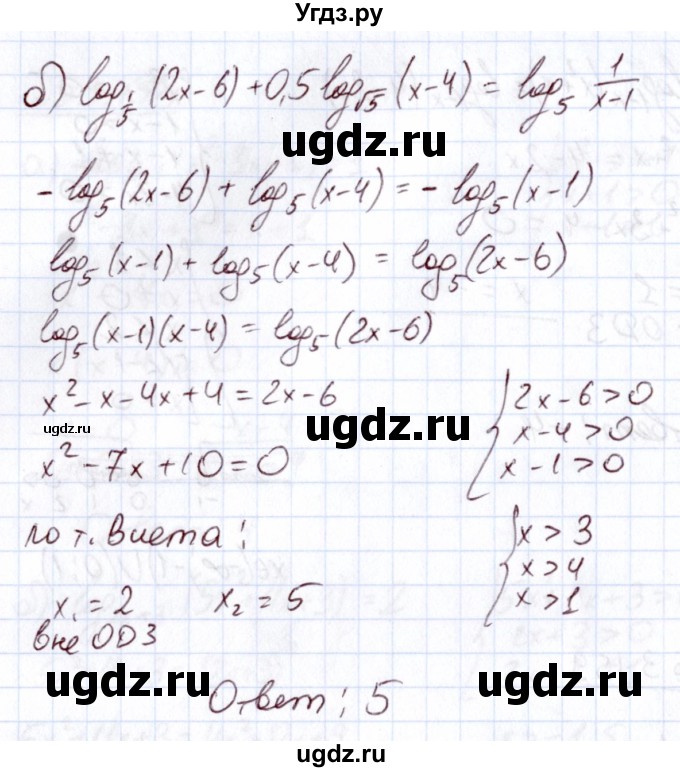 Угдз.ру
б) log_{1/5} (2x-6) + 0,5 log_{√5} (x-4) = log_5 1/(x-1)
ugdz.ru
- log_5 (2x-6) + log_5 (x-4) = - log_5 (x-1)
log_5 (x-1) + log_5 (x-4) = log_5 (2x-6)
log_5 (x-1)(x-4) = log_5 (2x-6)
x² - x - 4x + 4 = 2x - 6
{ 2x - 6 > 0
x - 4 > 0
x - 1 > 0
ugdz.ru
ugdz.ru
x² - 7x + 10 = 0
по т. Виета:
{ x > 3
x > 4
x > 1
x₁ = 2 x₂ = 5
вне ОДЗ
ugdz.ru
ugdz.ru
Ответ: 5
ugdz.ru
ugdz.ru